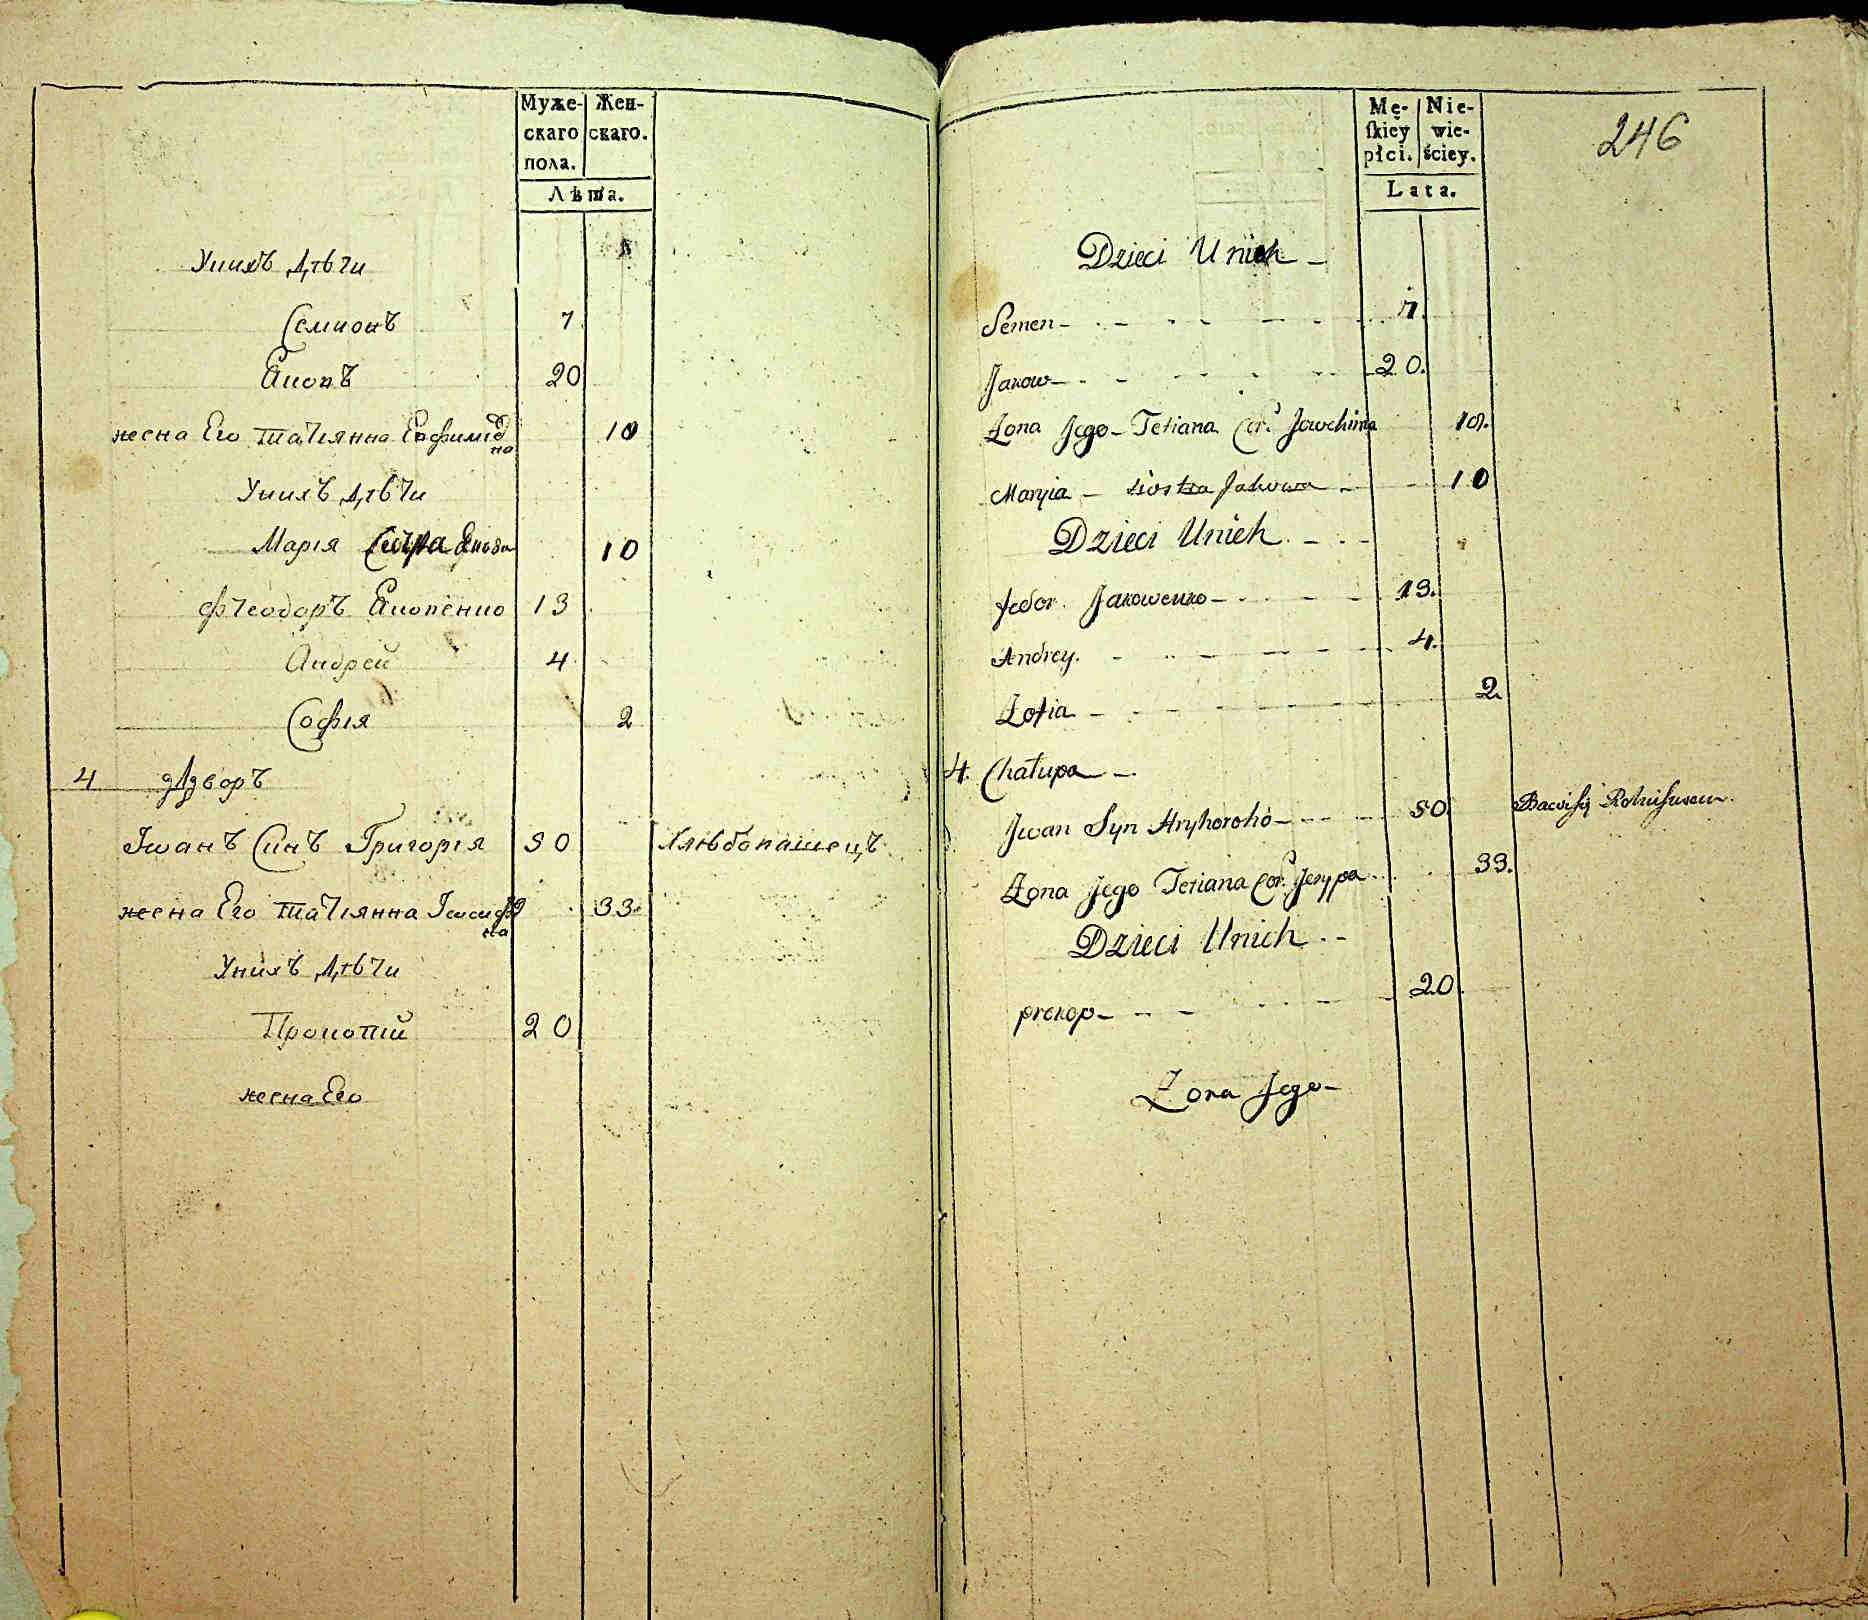 Муже-
скаго
пола.
Жен-
скаго.
Лѣта.
Унихъ Дѣти
Семионъ 7
Яковъ 20
жена Его Татіянна Евфимов
на 18
Унихъ Дѣти
Марія Сестра Якова 10
Феодоръ Яковенко 13
Андрей 4
Софія 2
4 Дворъ
Іванъ Синъ Григорія 50 Хлѣбопашецъ
жена Его Татіянна Іосифо
на 33
Унихъ Дѣти
Прокопій 20
жена Его
246
Mę-
skiey
płci.
Nie-
wie-
ściey.
Lata.
Dzieci Unich
Semen 7.
Jakow 20.
Zona Jego Tetiana Cor. Jowchima 18.
Maryia siostra Jakowa 10
Dzieci Unich
fedor Jakowenko 13.
Andrey. 4.
Zofia 2.
4. Chałupa
Jwan Syn Hryhoroho 50.
Zona Jego Tetiana Cor. Jesypa 33.
Dzieci Unich
prokop 20.
Zona Jego